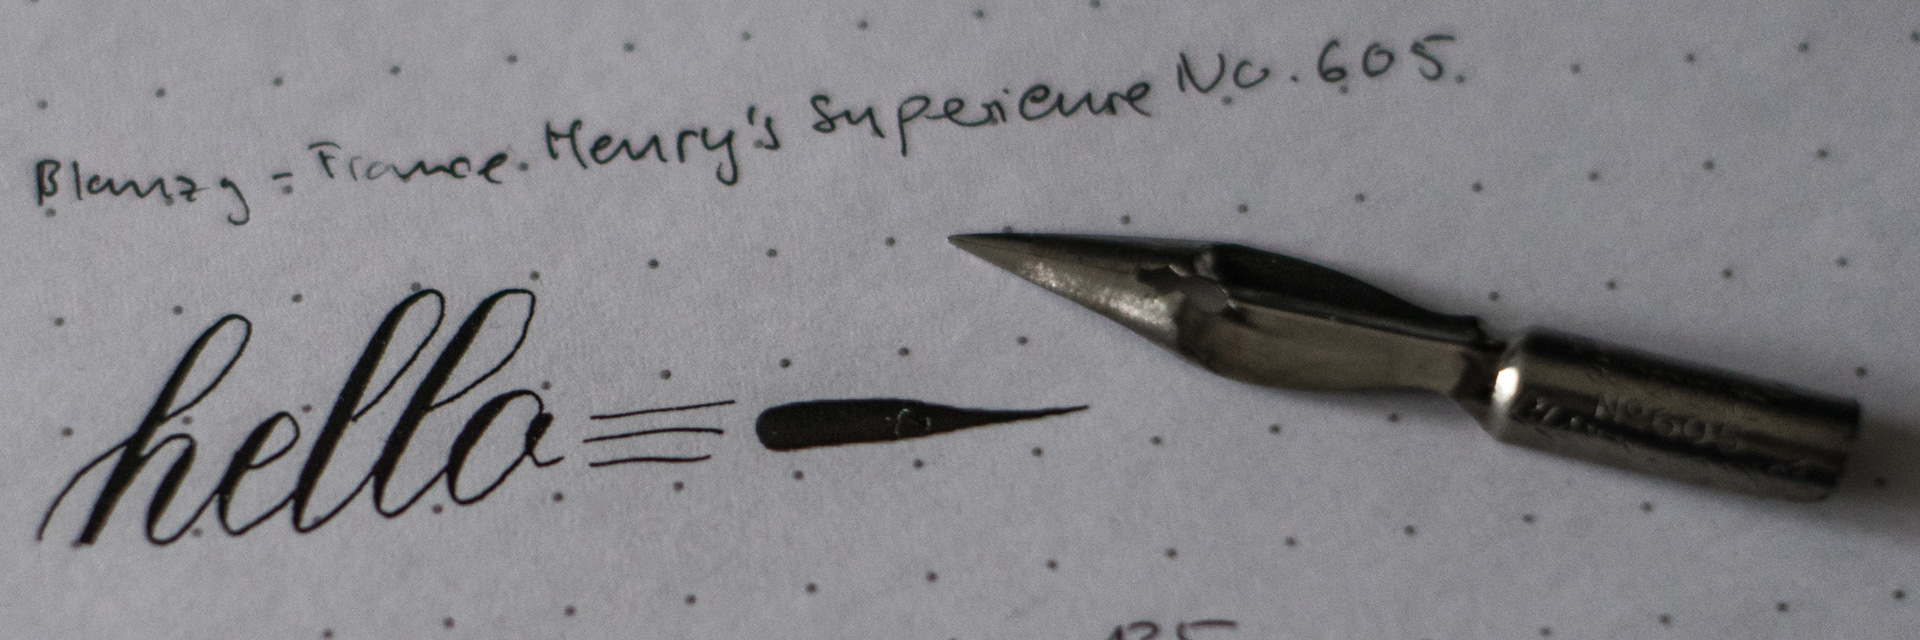 Blanzy = France. Henry's Superieure No. 605.
hello
No 605